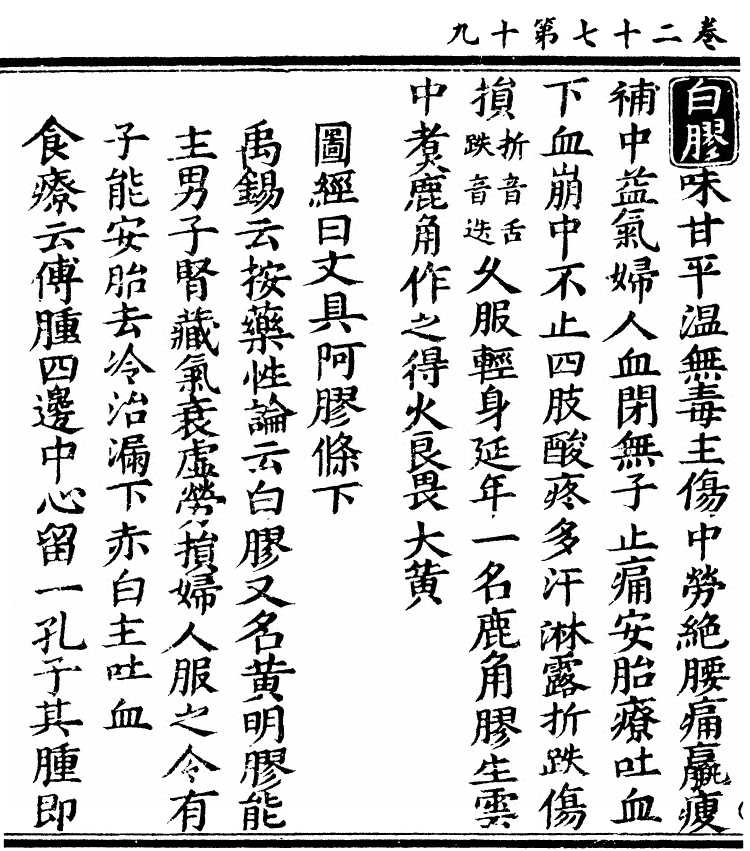 卷二十七第十九
白膠味甘平温無毒主傷中勞絶腰痛羸瘦
補中益氣婦人血閉無子止痛安胎療吐血
下血崩中不止四肢酸疼多汗淋露折跌傷
損折音舌跌音迭久服輕身延年一名鹿角膠生雲
中煑鹿角作之得火良畏大黄
圖經曰文具阿膠條下
禹錫云按藥性論云白膠又名黄明膠能
主男子腎藏氣衰虚勞損婦人服之令有
子能安胎去冷治漏下赤白主吐血
食療云傅腫四邊中心留一孔子其腫即